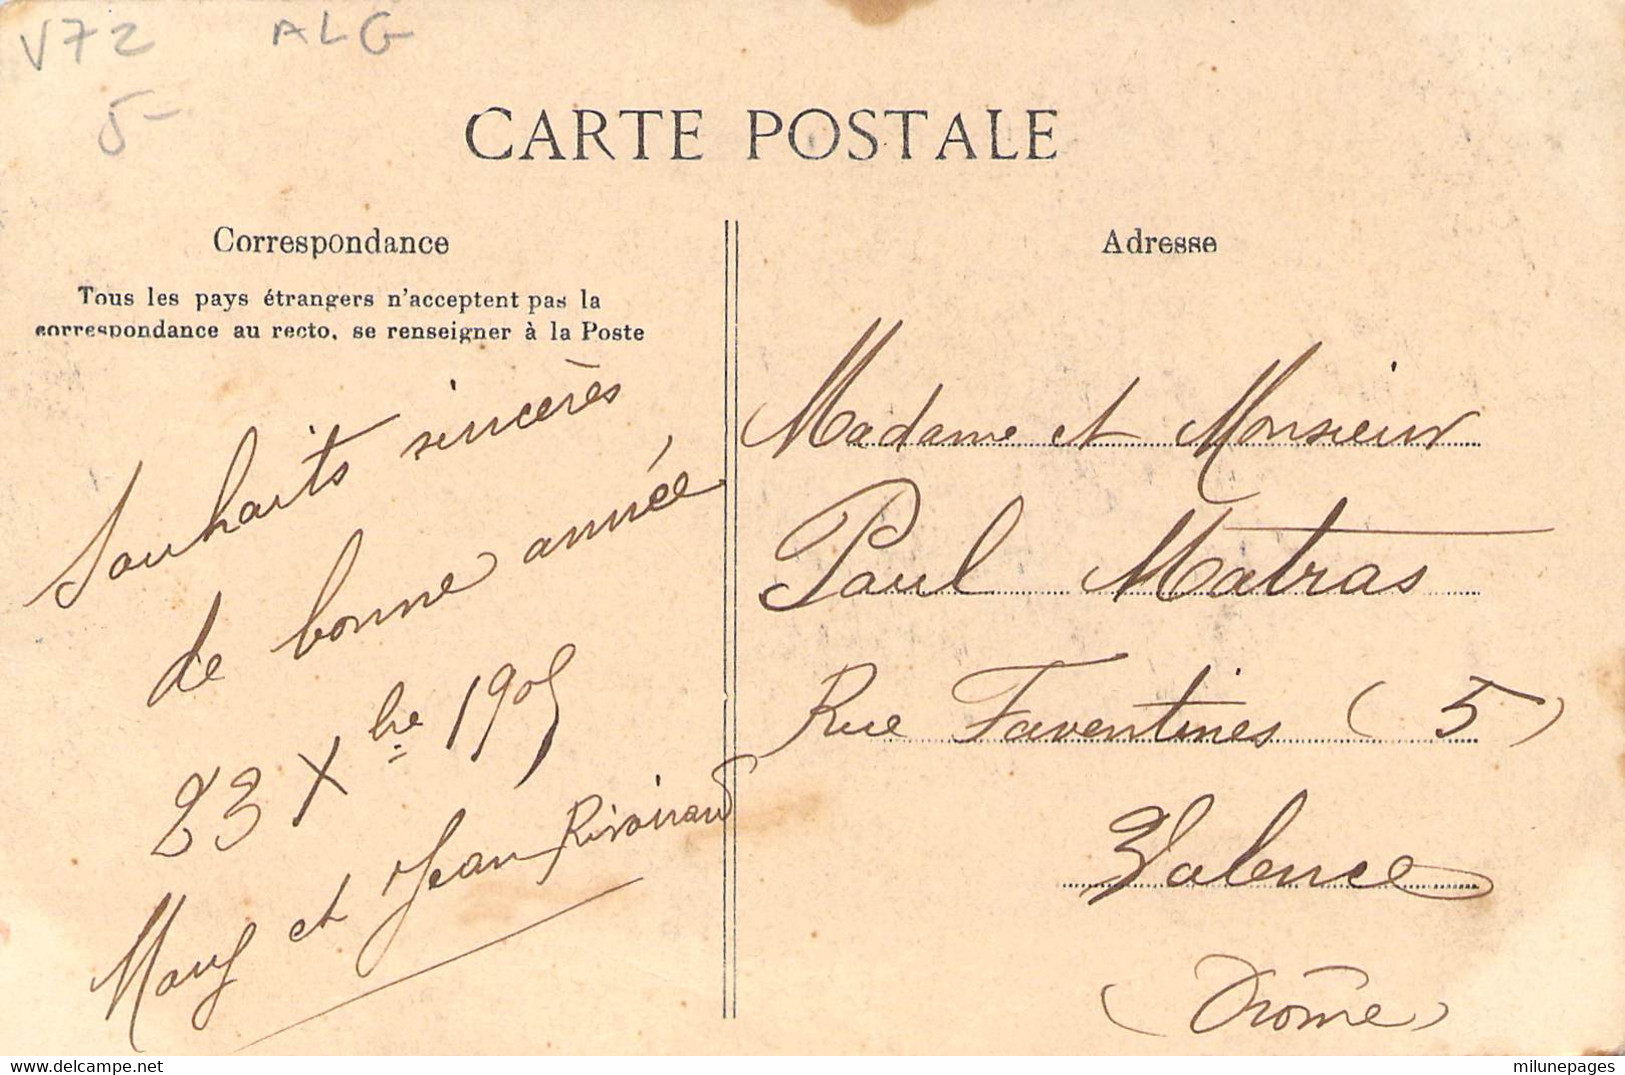 V72 ALG
5-
CARTE POSTALE
Correspondance
Tous les pays étrangers n'acceptent pas la
correspondance au recto, se renseigner à la Poste
Souhaits sincères
de bonne année
23 Xbre 1905
Mary et Jean Rivoirard
Adresse
Madame et Monsieur
Paul Matras
Rue Faventines (5)
Valence
(Drôme)
milunepages